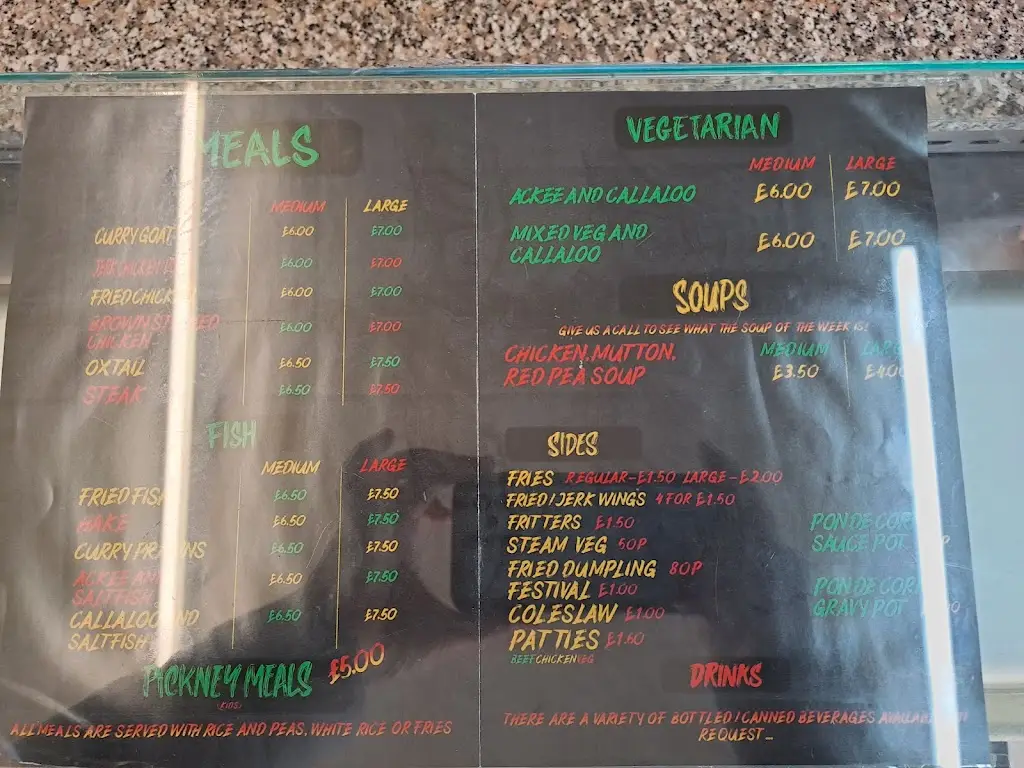 MEALS
MEDIUM LARGE
CURRY GOAT £6.00 £7.00
JERK CHICKEN £6.00 £7.00
FRIED CHICKEN £6.00 £7.00
BROWN STEWED
CHICKEN £6.00 £7.00
OXTAIL £6.50 £7.50
STEAK £6.50 £7.50
FISH
MEDIUM LARGE
FRIED FISH £6.50 £7.50
HAKE £6.50 £7.50
CURRY PRAWNS £6.50 £7.50
ACKEE AND
SALTFISH £6.50 £7.50
CALLALOO AND
SALTFISH £6.50 £7.50
PICKNEY MEALS £5.00
(KIDS)
ALL MEALS ARE SERVED WITH RICE AND PEAS, WHITE RICE OR FRIES
VEGETARIAN
MEDIUM LARGE
ACKEE AND CALLALOO £6.00 £7.00
MIXED VEG AND
CALLALOO £6.00 £7.00
SOUPS
GIVE US A CALL TO SEE WHAT THE SOUP OF THE WEEK IS!
MEDIUM LARGE
CHICKEN, MUTTON,
RED PEA SOUP £3.50 £4.00
SIDES
FRIES REGULAR-£1.50 LARGE-£2.00
FRIED/JERK WINGS 4 FOR £1.50
FRITTERS £1.50
STEAM VEG 50P
FRIED DUMPLING 80P
FESTIVAL £1.00
COLESLAW £1.00
PATTIES £1.60
BEEF CHICKEN VEG
PON DE
SAUCE POT
PON DE
GRAVY POT
DRINKS
THERE ARE A VARIETY OF BOTTLED/CANNED BEVERAGES AVAILABLE
REQUEST...